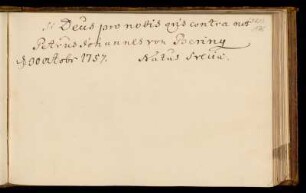 Si Deus pro nobis quis contra nos
Petrus Johannes von Bering
30 octobr 1757. Natus